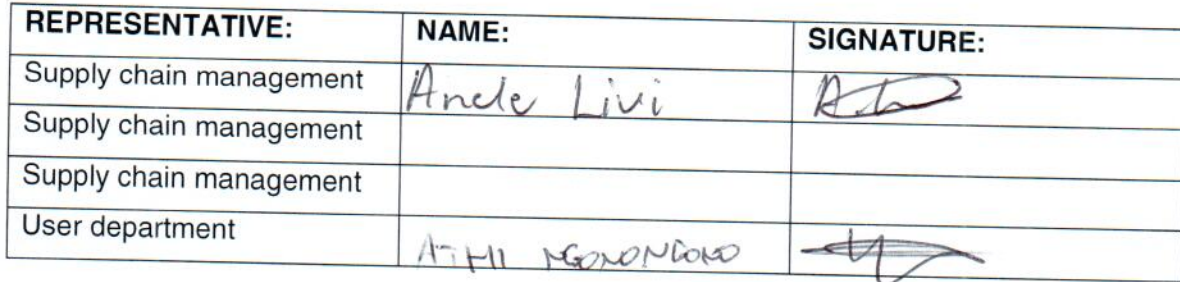 REPRESENTATIVE: NAME: SIGNATURE:
Supply chain management Ancle Livi
Supply chain management
Supply chain management
User department ATHI